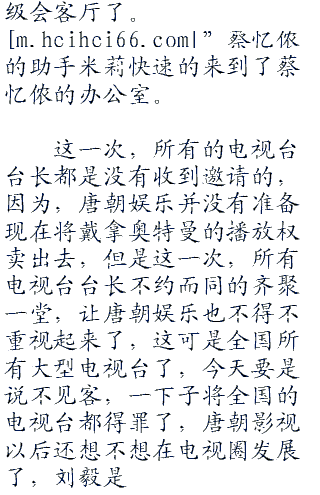 级会客厅了。
[m.hcihci66.com|”蔡忆侬
的助手米莉快速的来到了蔡
忆侬的办公室。
这一次，所有的电视台
台长都是没有收到邀请的，
因为，唐朝娱乐并没有准备
现在将戴拿奥特曼的播放权
卖出去，但是这一次，所有
电视台台长不约而同的齐聚
一堂，让唐朝娱乐也不得不
重视起来了，这可是全国所
有大型电视台了，今天要是
说不见客，一下子将全国的
电视台都得罪了，唐朝影视
以后还想不想在电视圈发展
了，刘毅是